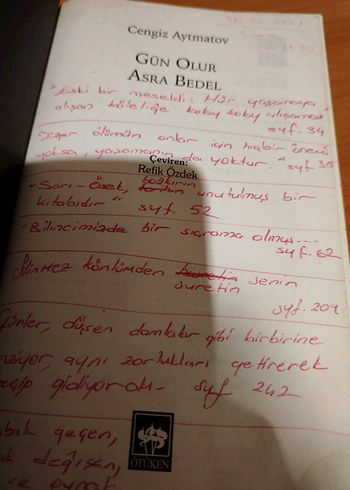 30.01.2021
Cengiz Aytmatov
GÜN OLUR
ASRA BEDEL
"Eski bir meseldi: Hür yaşamaya
alışan köleliğe kolay kolay alışamaz"
syf. 34
Eğer ölümün onlar için hiçbir önemi
yoksa, yaşamanın da yoktur." syf 36
Çeviren:
Refik Özdek
"Sarı-Özek, bozkırın tarihin unutulmuş bir
kitabıdır" syf. 52
"Bilincimizde bir sıçrama olmuş...
syf. 62
Silinmez gönlümden senin
suretin
syf. 204
Günler, düşen damlalar gibi birbirine
aynı zorlukları getirerek
gidiyordu. syf 242
geçen,
değişen,
ve
ÖTÜKEN